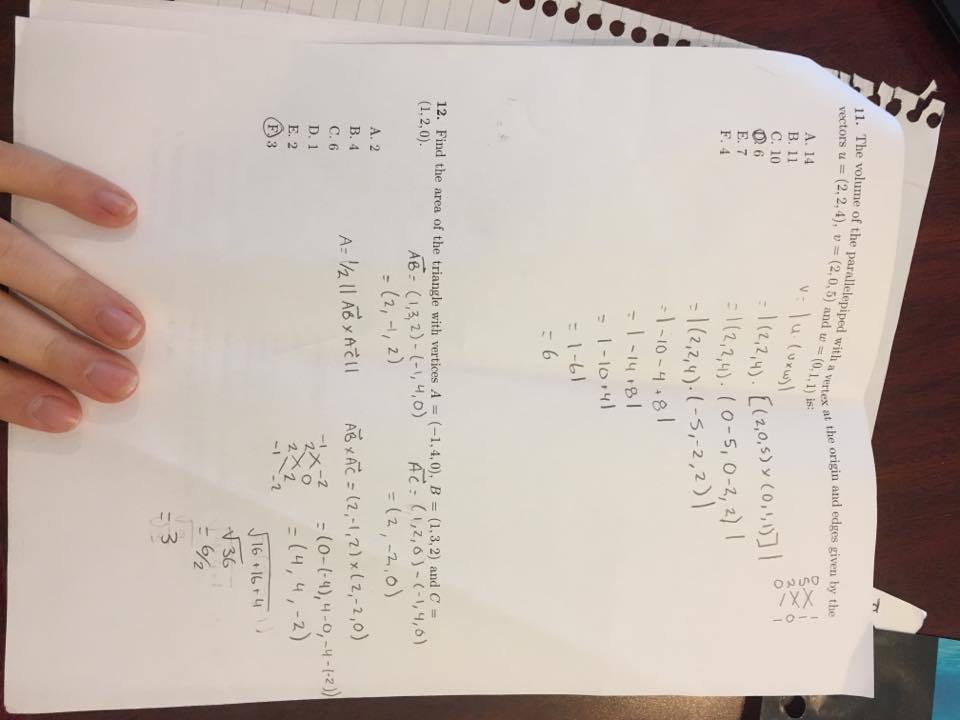 11. The volume of the parallelepiped with a vertex at the origin and edges given by the
vectors u = (2, 2, 4), v = (2, 0, 5) and w = (0, 1, 1) is:
A. 14
B. 11
C. 10
D. 6
E. 7
F. 4
V = | u · (v x w) |
= | (2,2,4) · [(2,0,5) x (0,1,1)] |
= | (2,2,4) · (0-5, 0-2, 2) |
= | (2,2,4) · (-5,-2,2) |
= | -10 -4 +8 |
= | -14 +8 |
= | -10 +4 |
= | -6 |
= 6
0 1
5 1
2 0
0 1
12. Find the area of the triangle with vertices A = (−1, 4, 0), B = (1, 3, 2) and C =
(1, 2, 0).
A. 2
B. 4
C. 6
D. 1
E. 2
F. 3
AB = (1,3,2) - (-1,4,0)
= (2, -1, 2)
AC = (1,2,0) - (-1,4,0)
= (2, -2, 0)
A = 1/2 || AB x AC ||
AB x AC = (2,-1,2) x (2,-2,0)
= (0-(-4), 4-0, -4-(-2))
= (4, 4, -2)
-1 -2
2 0
2 2
-1 -2
√16+16+4
√36
= 6/2
= 3